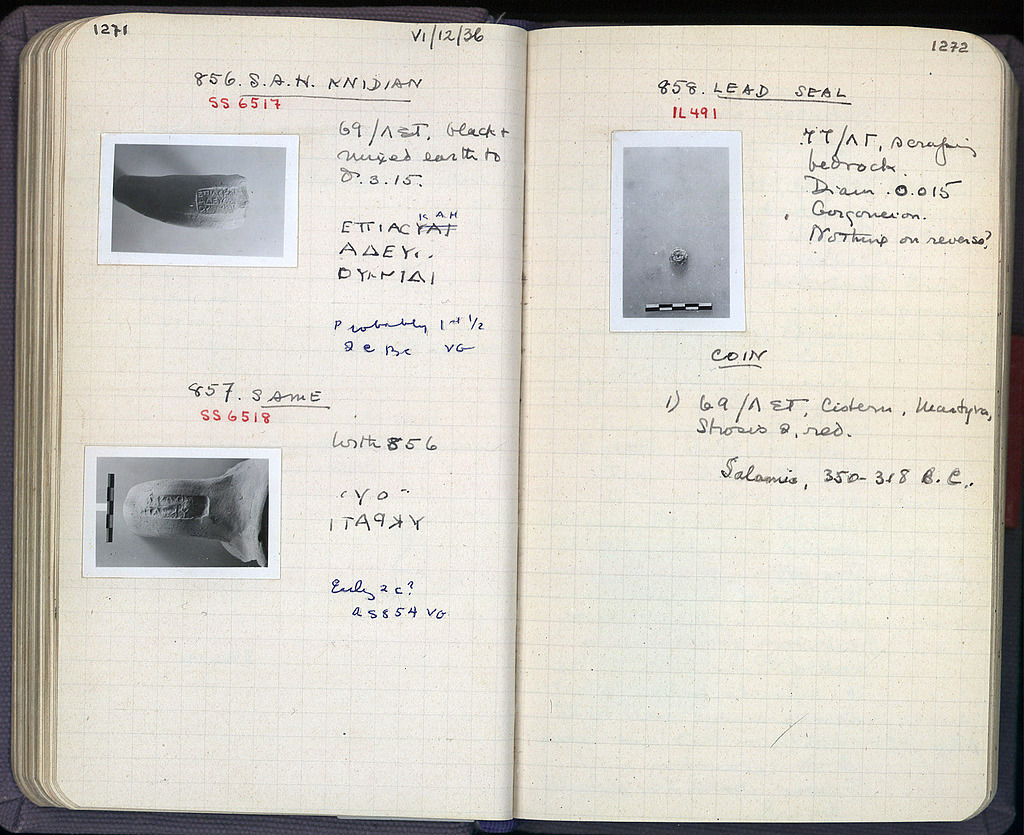 1271
VI/12/36
856. S.A.H. KNIDIAN
SS 6517
69/ΛΣΤ, black +
mixed earth to
δ. 3.15.
Κ Α Η
ΕΠΙΑΣ
ΑΔΕΥ..
ΟΥΚΝΙΔΙ
Probably 1st 1/2
2 c BC VG
857. SAME
SS 6518
With 856
ΥΟ
ΙΤΑΡΚΥ
Early 2 c?
as 854 VG
1272
858. LEAD SEAL
IL 491
77/ΛΓ, scraping
bedrock.
Diam. 0.015
Gorgoneion.
Nothing on reverse?
COIN
1) 69/ΛΣΤ, Cistern, Manhyra,
Strosis 2, red.
Salamis, 350-318 B.C.